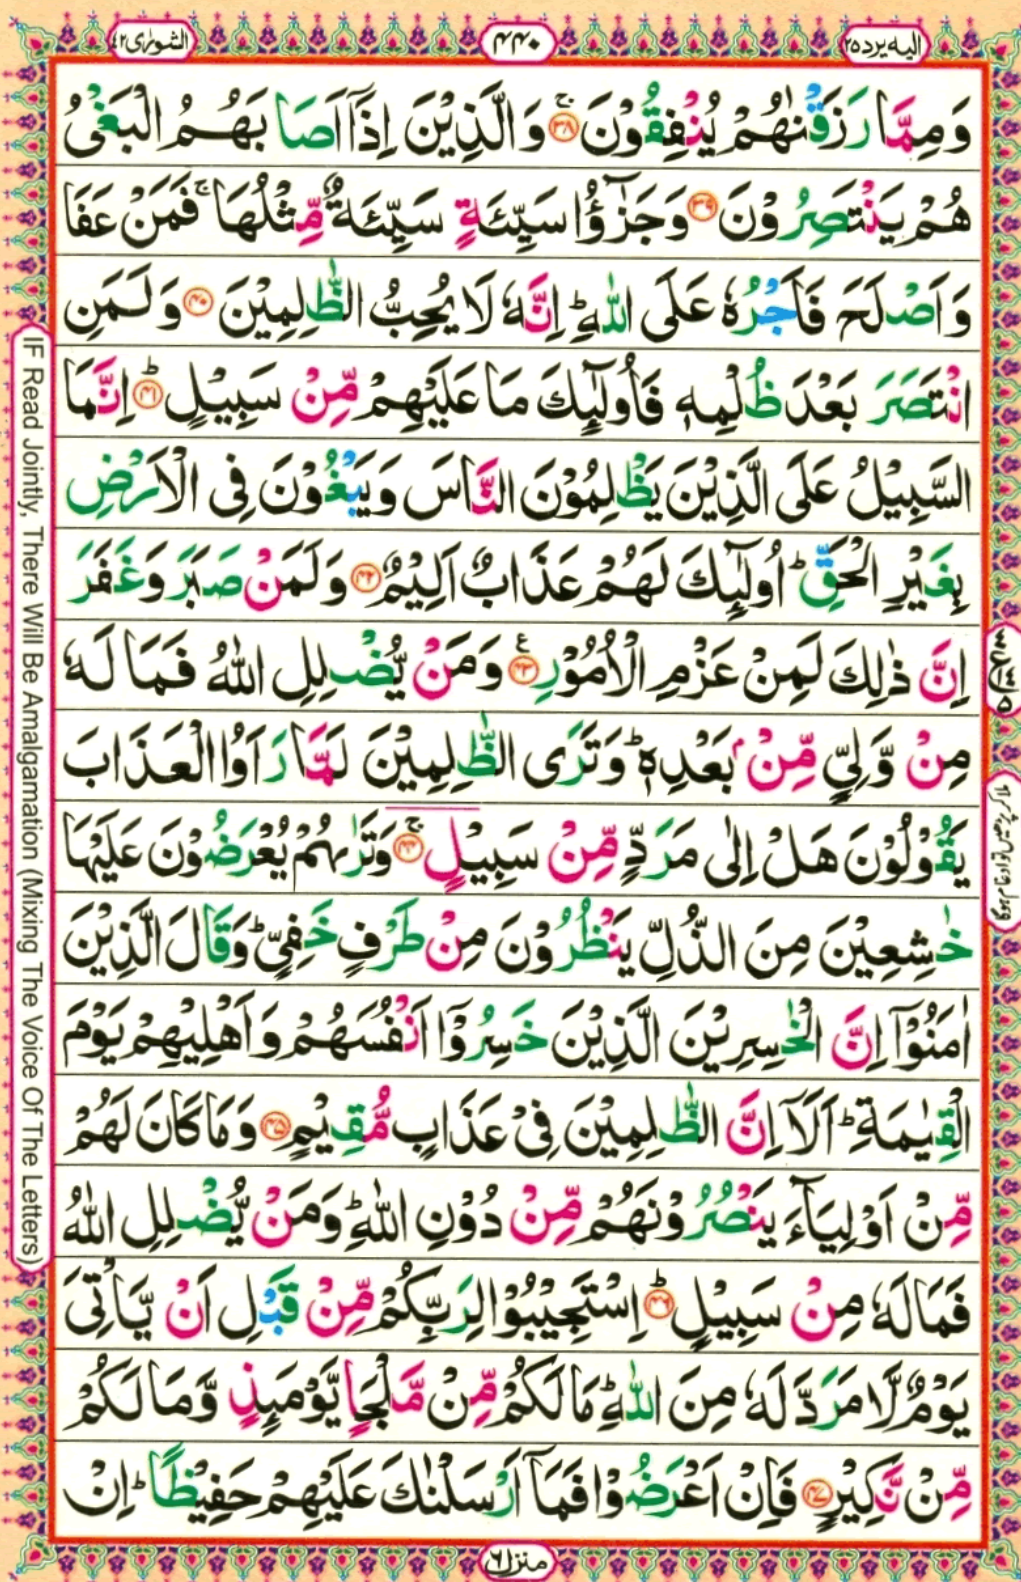 الیه یرد ۲۵
۴۴۰
الشورٰی ۴۲
وَمِمَّا رَزَقْنٰهُمْ يُنْفِقُوْنَ ۚ‏﴿۳۸﴾ وَالَّذِيْنَ اِذَاۤ اَصَابَهُمُ الْبَغْىُ
هُمْ يَنْتَصِرُوْنَ ﴿۳۹﴾ وَجَزٰٓؤُا سَيِّئَةٍ سَيِّئَةٌ مِّثْلُهَا ۚ فَمَنْ عَفَا
وَاَصْلَحَ فَاَجْرُهٗ عَلَى اللّٰهِ ؕ اِنَّهٗ لَا يُحِبُّ الظّٰلِمِيْنَ ﴿۴۰﴾ وَلَمَنِ
انْتَصَرَ بَعْدَ ظُلْمِهٖ فَاُولٰٓئِكَ مَا عَلَيْهِمْ مِّنْ سَبِيْلٍ ؕ‏﴿۴۱﴾ اِنَّمَا
السَّبِيْلُ عَلَى الَّذِيْنَ يَظْلِمُوْنَ النَّاسَ وَيَبْغُوْنَ فِى الْاَرْضِ
بِغَيْرِ الْحَقِّ ؕ اُولٰٓئِكَ لَهُمْ عَذَابٌ اَلِيْمٌ ﴿۴۲﴾ وَلَمَنْ صَبَرَ وَغَفَرَ
اِنَّ ذٰلِكَ لَمِنْ عَزْمِ الْاُمُوْرِ ﴿۴۳﴾ؑ وَمَنْ يُّضْلِلِ اللّٰهُ فَمَا لَهٗ
مِنْ وَّلِىٍّ مِّنْۢ بَعْدِهٖ ؕ وَتَرَى الظّٰلِمِيْنَ لَمَّا رَاَوُا الْعَذَابَ
يَقُوْلُوْنَ هَلْ اِلٰى مَرَدٍّ مِّنْ سَبِيْلٍ ۚ‏﴿۴۴﴾ وَتَرٰٮهُمْ يُعْرَضُوْنَ عَلَيْهَا
خٰشِعِيْنَ مِنَ الذُّلِّ يَنْظُرُوْنَ مِنْ طَرْفٍ خَفِىٍّ ؕ وَقَالَ الَّذِيْنَ
اٰمَنُوْۤا اِنَّ الْخٰسِرِيْنَ الَّذِيْنَ خَسِرُوْۤا اَنْفُسَهُمْ وَاَهْلِيْهِمْ يَوْمَ
الْقِيٰمَةِ ؕ اَلَاۤ اِنَّ الظّٰلِمِيْنَ فِىْ عَذَابٍ مُّقِيْمٍ ﴿۴۵﴾ وَمَا كَانَ لَهُمْ
مِّنْ اَوْلِيَآءَ يَنْصُرُوْنَهُمْ مِّنْ دُوْنِ اللّٰهِ ؕ وَمَنْ يُّضْلِلِ اللّٰهُ
فَمَا لَهٗ مِنْ سَبِيْلٍ ؕ‏﴿۴۶﴾ اِسْتَجِيْبُوْا لِرَبِّكُمْ مِّنْ قَبْلِ اَنْ يَّاْتِىَ
يَوْمٌ لَّا مَرَدَّ لَهٗ مِنَ اللّٰهِ ؕ مَا لَكُمْ مِّنْ مَّلْجَاٍ يَّوْمَئِذٍ وَّمَا لَكُمْ
مِّنْ نَّكِيْرٍ ﴿۴۷﴾ فَاِنْ اَعْرَضُوْا فَمَاۤ اَرْسَلْنٰكَ عَلَيْهِمْ حَفِيْظًا ؕ اِنْ
منزل ۶
IF Read Jointly, There Will Be Amalgamation (Mixing The Voice Of The Letters)